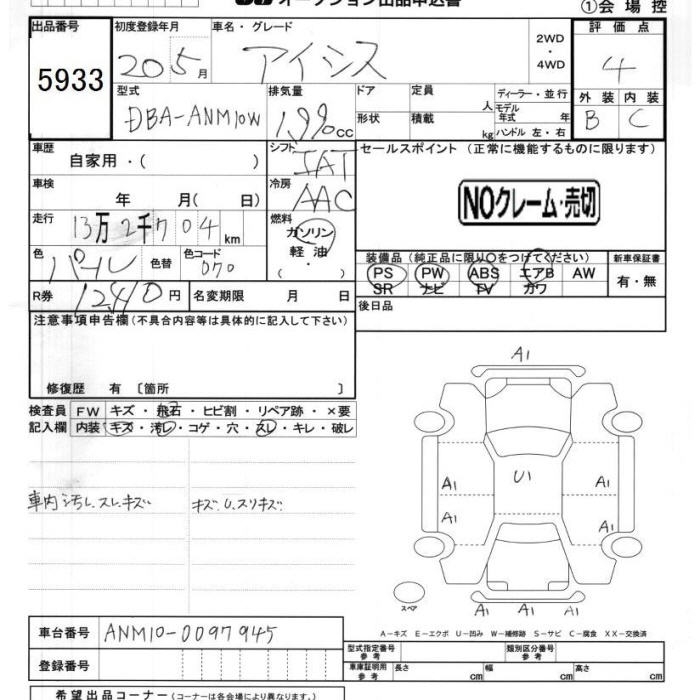 オークション出品申込書
①会場控
出品番号 初度登録年月 車名・グレード 2WD ・ 4WD 評価点
5933 20 5月 アイシス 4
型式 排気量 ドア 定員 人 ディーラー・並行 外装 内装
DBA-ANM10W 1,990cc 形状 積載 kg モデル年式 年 ハンドル 左・右 B C
車歴 自家用・( ) シフト IAT セールスポイント (正常に機能するものに限ります)
車検 年 月(日) 冷房 AAC
NOクレーム・売切
走行 13万2千704km 燃料 ガソリン 軽油 ( ・ )
色 パール 色替 色コード 070
装備品(純正品に限り○をつけてください) 新車保証書
PS PW ABS エアB AW 有・無
SR ナビ TV カワ
R券 1240円 名変期限 月 日
後日品
注意事項申告欄(不具合内容等は具体的に記入して下さい)
修復歴 有 〔箇所 〕
検査員 FW キズ・飛石・ヒビ割・リペア跡・×要
記入欄 内装 キズ・汚レ・コゲ・穴・スレ・キレ・破レ
車内汚レ.スレ.キズ キズ.U.スリキズ
A1
A1 U1 A1
A1 A1
スペア A1 A1 A1
車台番号 ANM10-0097945
A-キズ E-エクボ U-凹み W-補修跡 S-サビ C-腐食 XX-交換済
登録番号
型式指定番号 参考 類別区分番号 参考
車庫証明用 参考 長さ cm 幅 cm 高さ cm
希望出品コーナー(コーナーは各会場により異なります。)